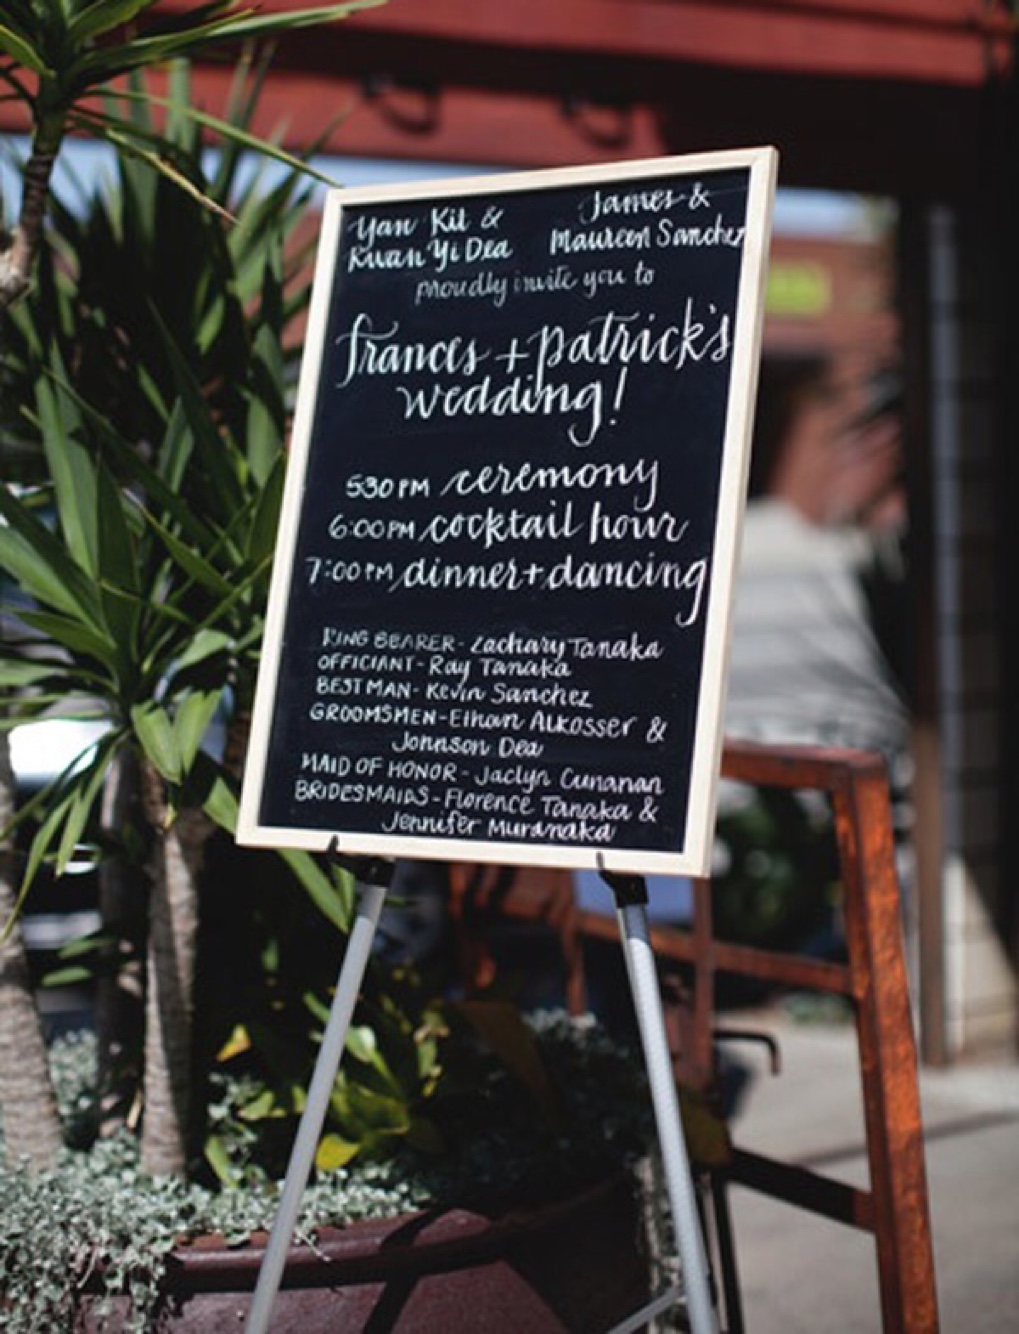 Yan Kit & James &
Kwan Yi Dea Maureen Sanchez
proudly invite you to
frances + patrick's
wedding!
530PM ceremony
6:00PM cocktail hour
7:00PM dinner + dancing
RING BEARER - Zachary Tanaka
OFFICIANT - Ray Tanaka
BEST MAN - Kevin Sanchez
GROOMSMEN - Eihan Alkosser &
Jonnson Dea
MAID OF HONOR - Jaclyn Cunanan
BRIDESMAIDS - Florence Tanaka &
Jennifer Muranaka